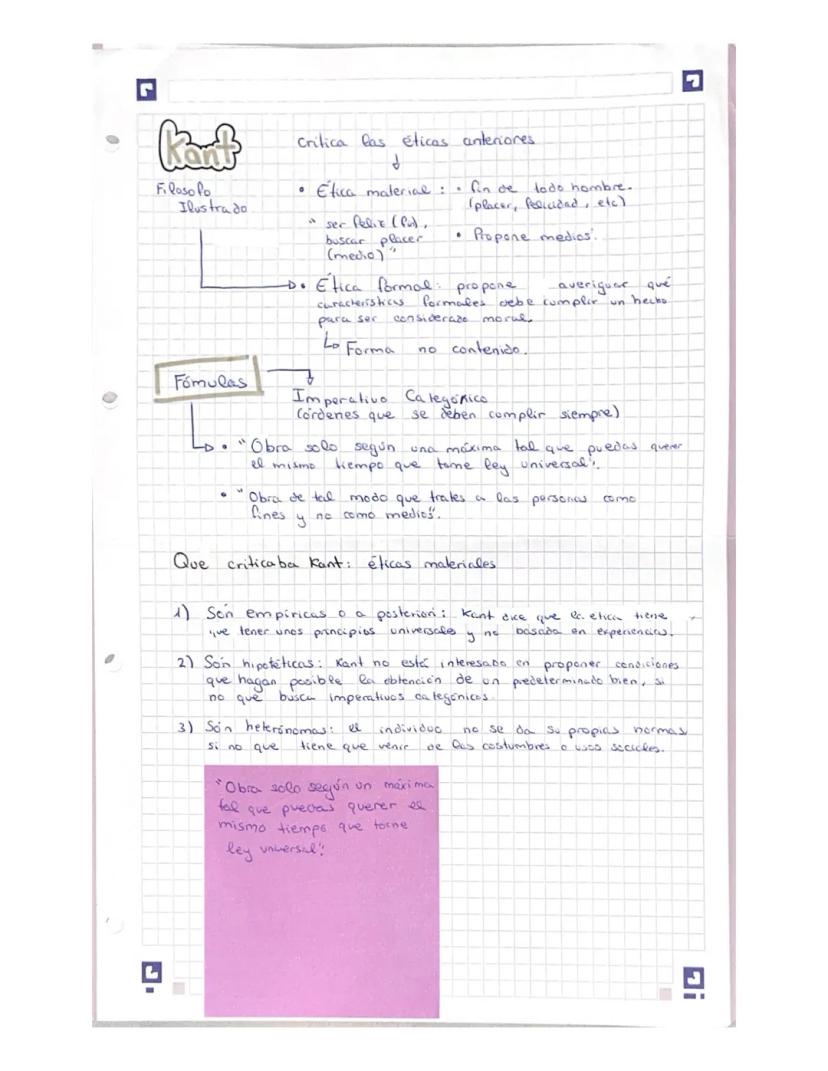 Kant
Crítica las éticas anteriores
Filosofo
Ilustrado
• Ética material :
• fin de todo hombre.
(placer, felicidad, etc)
" ser feliz (fin),
buscar placer
(medio) "
• Propone medios.
• Ética formal: propone averiguar qué
características formales debe cumplir un hecho
para ser considerado moral.
Forma no contenido.
Fómulas
Imperativo Categórico
(órdenes que se deben cumplir siempre)
• "Obra solo según una máxima tal que puedas querer
el mismo tiempo que torne ley universal".
• "Obra de tal modo que trates a las personas como
fines y no como medios".
Que criticaba Kant: éticas materiales
1) Són empíricas o a posteriori: Kant dice que la etica tiene
que tener unos principios universales y no basada en experiencias.
2) Són hipotéticas: Kant no está interesado en proponer condiciones
que hagan posible la obtención de un predeterminado bien, si
no que busca imperativos categóricos.
3) Són heterónomas: el individuo no se da su propias normas,
si no que tiene que venir de las costumbres o usos sociales.
"Obra solo según un máxima
tal que puedas querer el
mismo tiempo que torne
ley universal".